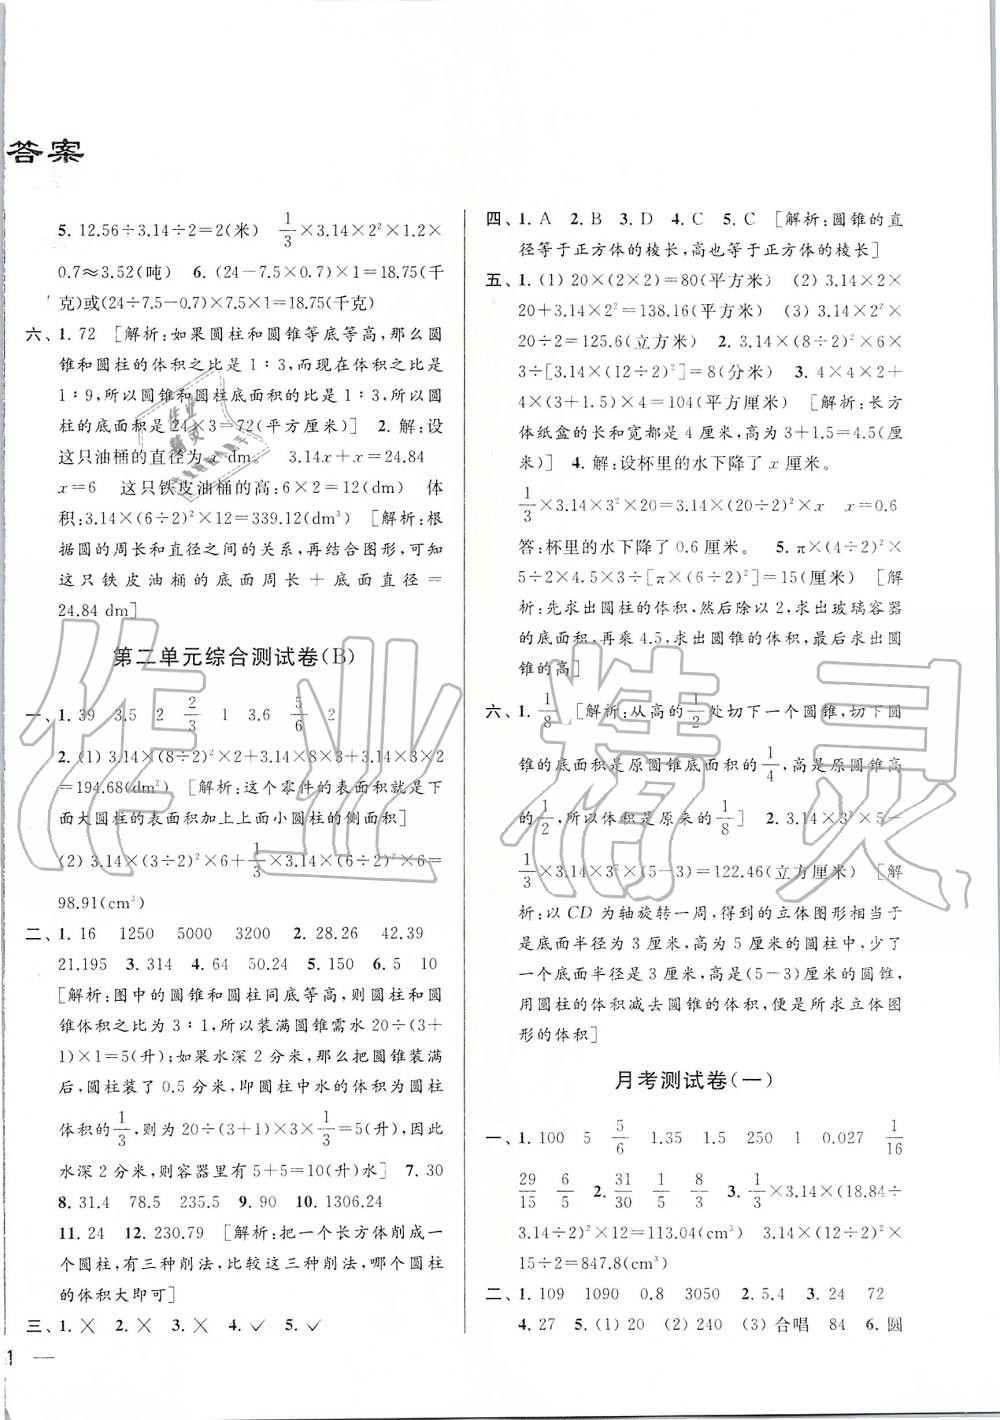 答案
5. 12.56÷3.14÷2=2(米) 1/3×3.14×2²×1.2×
0.7≈3.52(吨) 6. (24-7.5×0.7)×1=18.75(千
克)或(24÷7.5-0.7)×7.5×1=18.75(千克)
六、1. 72 [解析:如果圆柱和圆锥等底等高,那么圆
锥和圆柱的体积之比是1∶3,而现在体积的比是
1∶9,所以圆锥和圆柱底面积的比是1∶3,所以圆
柱的底面积是24×3=72(平方厘米)] 2. 解:设
这只油桶的直径为x dm。 3.14x+x=24.84
x=6 这只铁皮油桶的高:6×2=12(dm) 体
积:3.14×(6÷2)²×12=339.12(dm³) [解析:根
据圆的周长和直径之间的关系,再结合图形,可知
这只铁皮油桶的底面周长+底面直径=
24.84 dm]
第二单元综合测试卷(B)
一、1. 39 3.5 2 2/3 1 3.6 5/6 2
2. (1) 3.14×(8÷2)²×2+3.14×8×3+3.14×3×2
=194.68(dm²) [解析:这个零件的表面积就是下
面大圆柱的表面积加上上面小圆柱的侧面积]
(2) 3.14×(3÷2)²×6+1/3×3.14×(6÷2)²×6=
98.91(cm³)
二、1. 16 1250 5000 3200 2. 28.26 42.39
21.195 3. 314 4. 64 50.24 5. 150 6. 5 10
[解析:图中的圆锥和圆柱同底等高,则圆柱和圆
锥体积之比为3∶1,所以装满圆锥需水20÷(3+
1)×1=5(升);如果水深2分米,那么把圆锥装满
后,圆柱装了0.5分米,即圆柱中水的体积为圆柱
体积的1/3,则为20÷(3+1)×3×1/3=5(升),因此
水深2分米,则容器里有5+5=10(升)水] 7. 30
8. 31.4 78.5 235.5 9. 90 10. 1306.24
11. 24 12. 230.79 [解析:把一个长方体削成一
个圆柱,有三种削法,比较这三种削法,削成的圆柱
的体积大即可]
三、1. × 2. × 3. × 4. ✓ 5. ✓
1 —
四、1. A 2. B 3. D 4. C 5. C [解析:圆锥的直
径等于正方体的棱长,高也等于正方体的棱长]
五、1. (1) 20×(2×2)=80(平方米) (2) 3.14×2×
20+3.14×2²=138.16(平方米) (3) 3.14×2²×
20÷2=125.6(立方米) 2. 3.14×(8÷2)²×6×
3÷[3.14×(12÷2)²]=8(分米) 3. 4×4×2+
4×(3+1.5)×4=104(平方厘米) [解析:长方
体纸盒的长和宽都是4厘米,高为3+1.5=4.5(厘
米)] 4. 解:设杯里的水下降了x厘米。
1/3×3.14×3²×20=3.14×(20÷2)²×x x=0.6
答:杯里的水下降了0.6厘米。 5. π×(4÷2)²×
5÷2×4.5×3÷[π×(6÷2)²]=15(厘米) [解
析:先求出圆柱的体积,然后除以2,求出玻璃容器
的底面积,再乘4.5,求出圆锥的体积,最后求出圆
锥的高]
六、1. 1/8 [解析:从高的1/2处切下一个圆锥,切下圆
锥的底面积是原圆锥底面积的1/4,高是原圆锥高
的1/2,所以体积是原来的1/8] 2. 3.14×3²×5-
1/3×3.14×3²×(5-3)=122.46(立方厘米) [解
析:以CD为轴旋转一周,得到的立体图形相当于
是底面半径为3厘米,高为5厘米的圆柱中,少了
一个底面半径是3厘米,高是(5-3)厘米的圆锥,
用圆柱的体积减去圆锥的体积,便是所求立体图
形的体积]
月考测试卷(一)
一、1. 100 5 5/6 1.35 1.5 250 1 0.027 1/16
29/15 6/5 2. 31/30 1/5 8/3 3. 1/3×3.14×(18.84÷
3.14÷2)²×12=113.04(cm³) 3.14×(12÷2)²×
15÷2=847.8(cm³)
二、1. 109 1090 0.8 3050 2. 5.4 3. 24 72
4. 27 5. (1) 20 (2) 240 (3) 合唱 84 6. 圆
作业精灵
作业
精灵